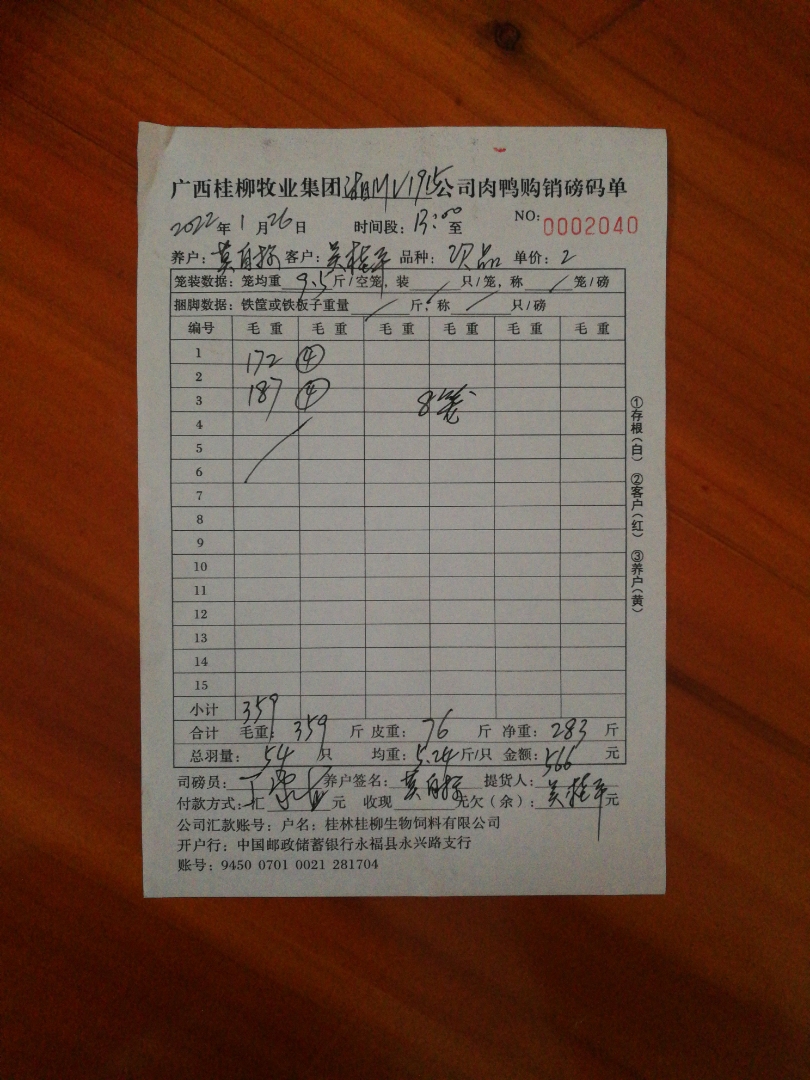 广西桂柳牧业集团 公司肉鸭购销磅码单
2022年1月26日 时间段:13:00至 NO:0002040
养户:莫自 客户:吴桂平 品种:次品 单价:2
笼装数据:笼均重9.5斤/空笼,装 只/笼,称 笼/磅
捆脚数据:铁筐或铁板子重量 斤,称 只/磅
编号 毛重 毛重 毛重 毛重 毛重 毛重
1 172 ④
2
3 187 ④ 8笼
4
5
6
7
8
9
10
11
12
13
14
15
小计 359
合计 毛重:359斤 皮重:76斤 净重:283斤
总羽量:54只 均重:5.24斤/只 金额:566元
司磅员: 养户签名:莫自 提货人:吴桂平
付款方式:汇 元 收现 元欠(余): 元
公司汇款账号:户名:桂林桂柳生物饲料有限公司
开户行:中国邮政储蓄银行永福县永兴路支行
账号:9450 0701 0021 281704
①存根(白) ②客户(红) ③养户(黄)